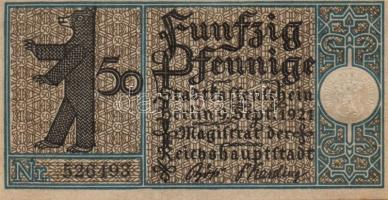 Funfzig
50 Pfennige
Stadtkassenschein
Berlin 9. Sept. 1921
Magistrat der
Reichshauptstadt
Nr. 526493